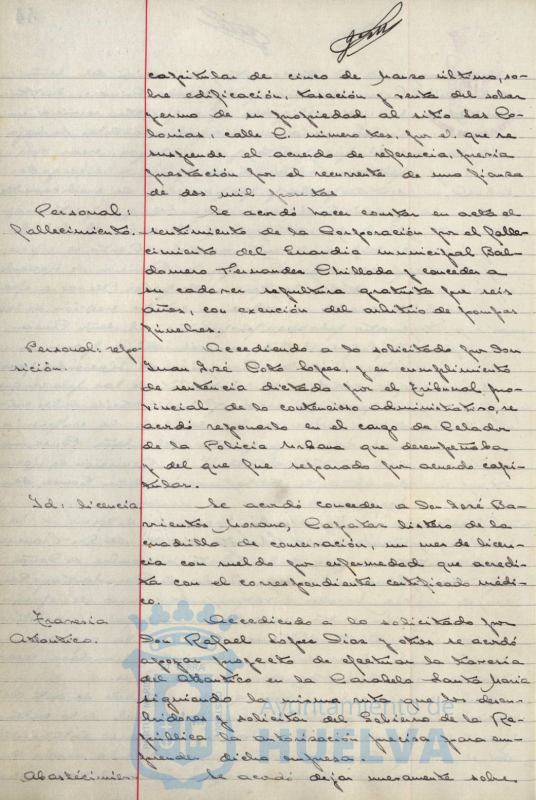 capitular de cinco de Marzo último, so-
bre edificación, tasación y venta del solar
yermo de su propiedad al sitio Las Co-
lonias, calle C, número tres, por el que se
suspende el acuerdo de referencia, previa
prestación por el recurrente de una fianza
de dos mil pesetas
Personal:
fallecimiento.
Se acordó hacer constar en acta el
sentimiento de la Corporación por el falle-
cimiento del Guardia municipal Bal-
domero Fernandez Chillada y conceder a
su cadaver sepultura gratuita por seis
años, con exención del arbitrio de pompas
fúnebres.
Personal: repo-
sición.
Accediendo a lo solicitado por Don
Juan José Coto Lopez, y en cumplimiento
de sentencia dictada por el Tribunal pro-
vincial de lo contencioso administrativo, se
acordó reponerlo en el cargo de Celador
de la Policía Urbana que desempeñaba
y del que fue separado por acuerdo capi-
tular.
Id: licencia
Se acordó conceder a Don José Ba-
rrientos Morano, Capataz listero de la
cuadrilla de conservación, un mes de licen-
cia con sueldo por enfermedad que acredi-
ta con el correspondiente certificado médi-
co.
Travesia
Atlantico.
Accediendo a lo solicitado por
Don Rafael Lopez Diaz y otros se acordó
apoyar proyecto de efectuar la travesia
del Atlantico en la Carabela Santa Maria
siguiendo la misma ruta que los descu-
bridores y solicitar del Gobierno de la Re-
pública la autorización precisa para em-
prender dicha empresa.
Abastecimien-
Se acordó dejar nuevamente sobre
Ayuntamiento de
HUELVA